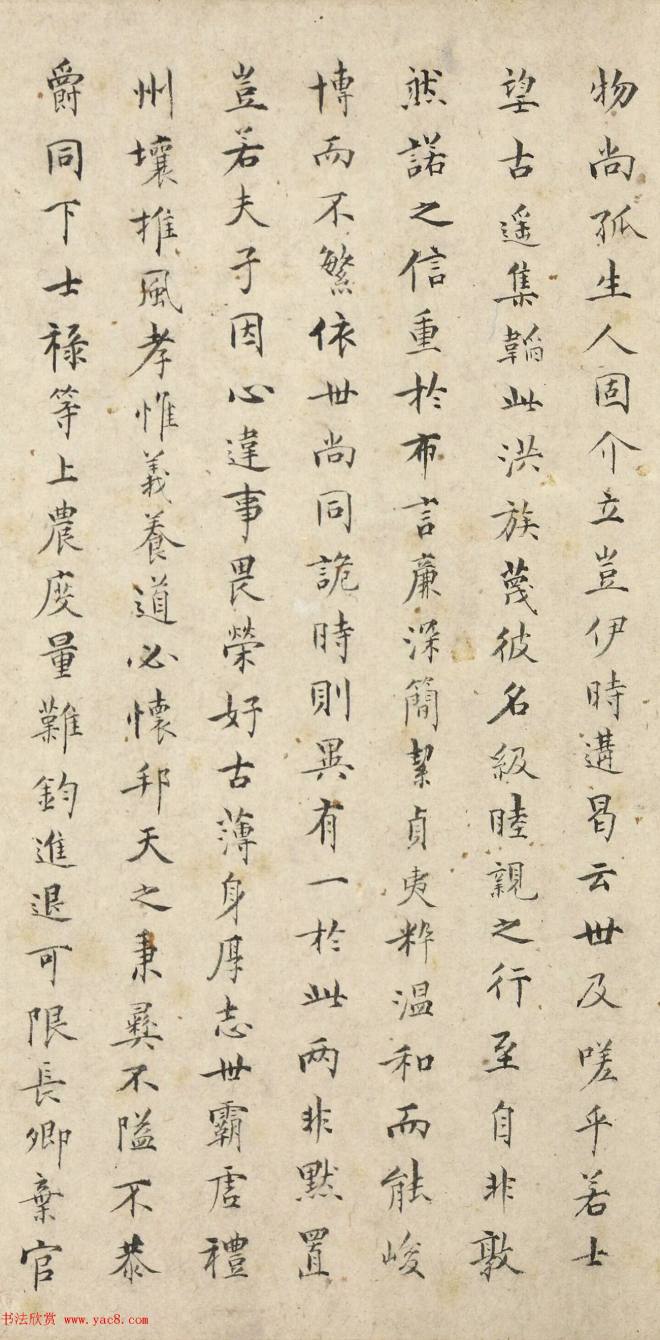 物尚孤生人固介立豈伊時遘曷云世及嗟乎若士
望古遥集韜此洪族蔑彼名級睦親之行至自非敦
然諾之信重於布言廉深簡絜貞夷粹温和而能峻
博而不繁依世尚同詭時則異有一於此两非默置
豈若夫子因心違事畏榮好古薄身厚志世霸虚禮
州壤推風孝惟義養道必懷邦天之秉彞不隘不恭
爵同下士禄等上農度量難鈞進退可限長卿棄官
书法欣赏 www.yac8.com